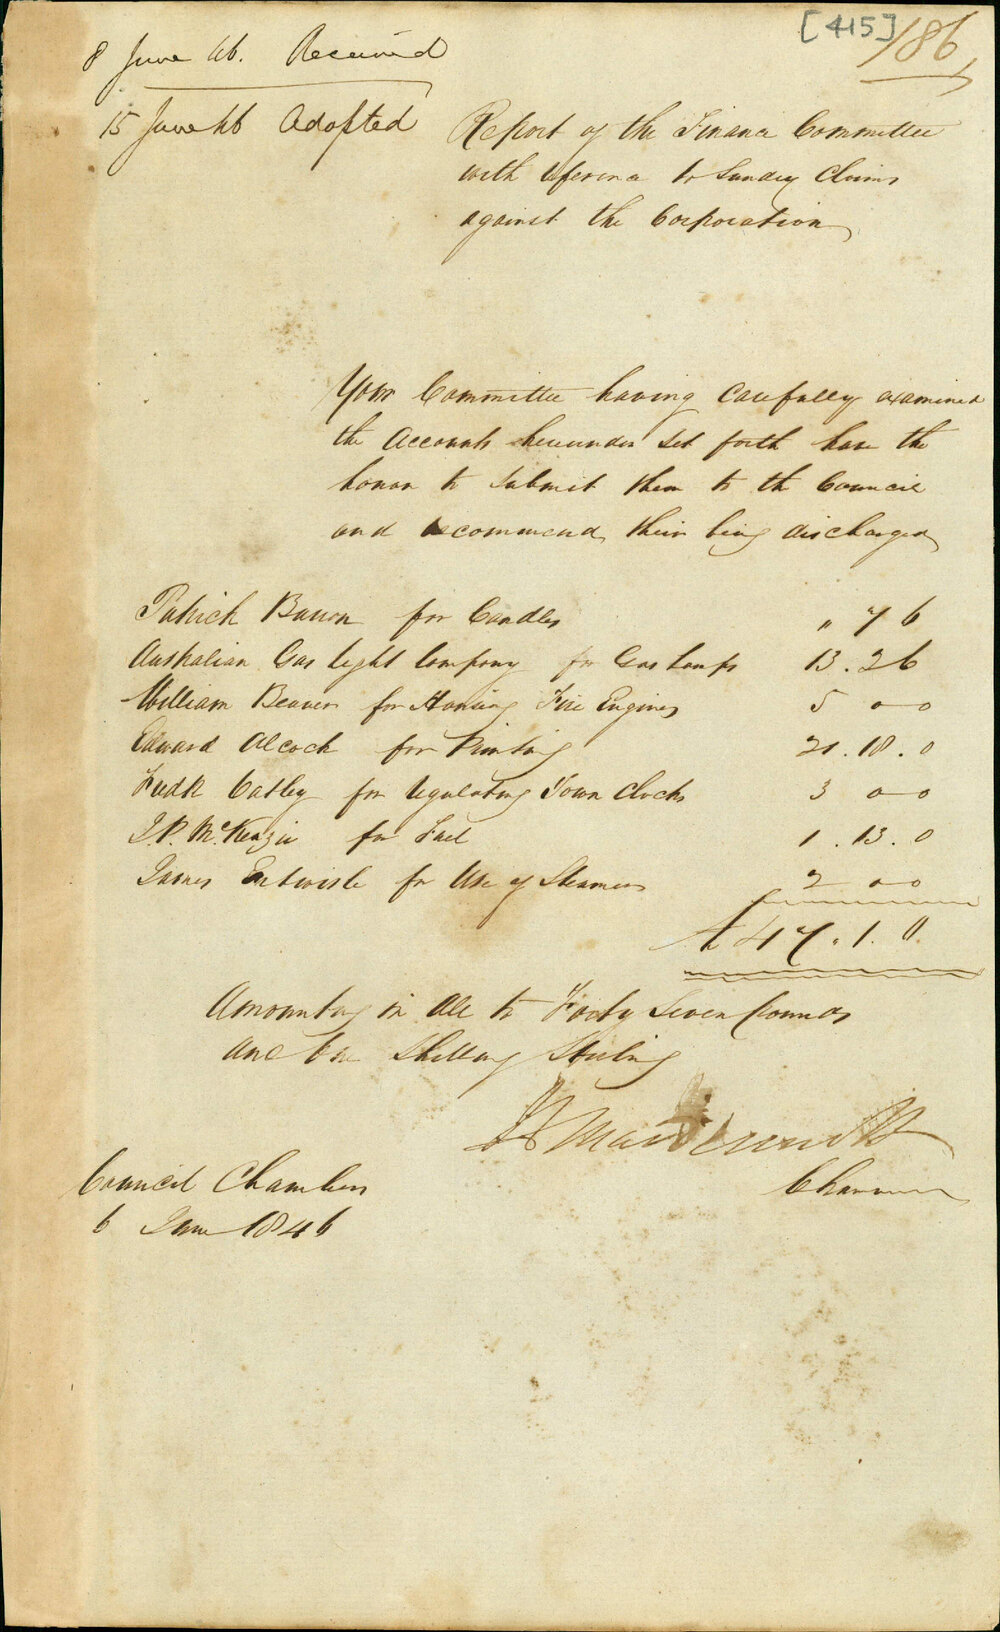 [415]
186
8 June 46. Received
15 June 46 Adopted
Report of the Finance Committee
with reference to Sundry Claims
against the Corporation
Your Committee having Carefully examined
the Accounts hereunder set forth have the
honor to Submit them to the Council
and recommend their being discharged
Patrick Barron for Candles " 7 6
Australian Gas light Company for Gas Lamps 13 . 2 6
William Beaver for Housing Fire Engines 5 0 0
Edward Alcock for Printing 21 . 18 . 0
Fredk Catley for regulating Town Clocks 3 0 0
J.P. McKenzie for Fuel 1 . 13 . 0
James Entwisle for Use of Steamers 2 0 0
£ 47 . 1 . 0.
Amounting in All to Forty Seven Pounds
and One Shilling Sterling
Chairman
Council Chambers
6 June 1846